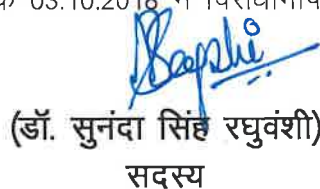 03.10.2018 में
(डॉ. सुनंदा सिंह रघुवंशी)
सदस्य